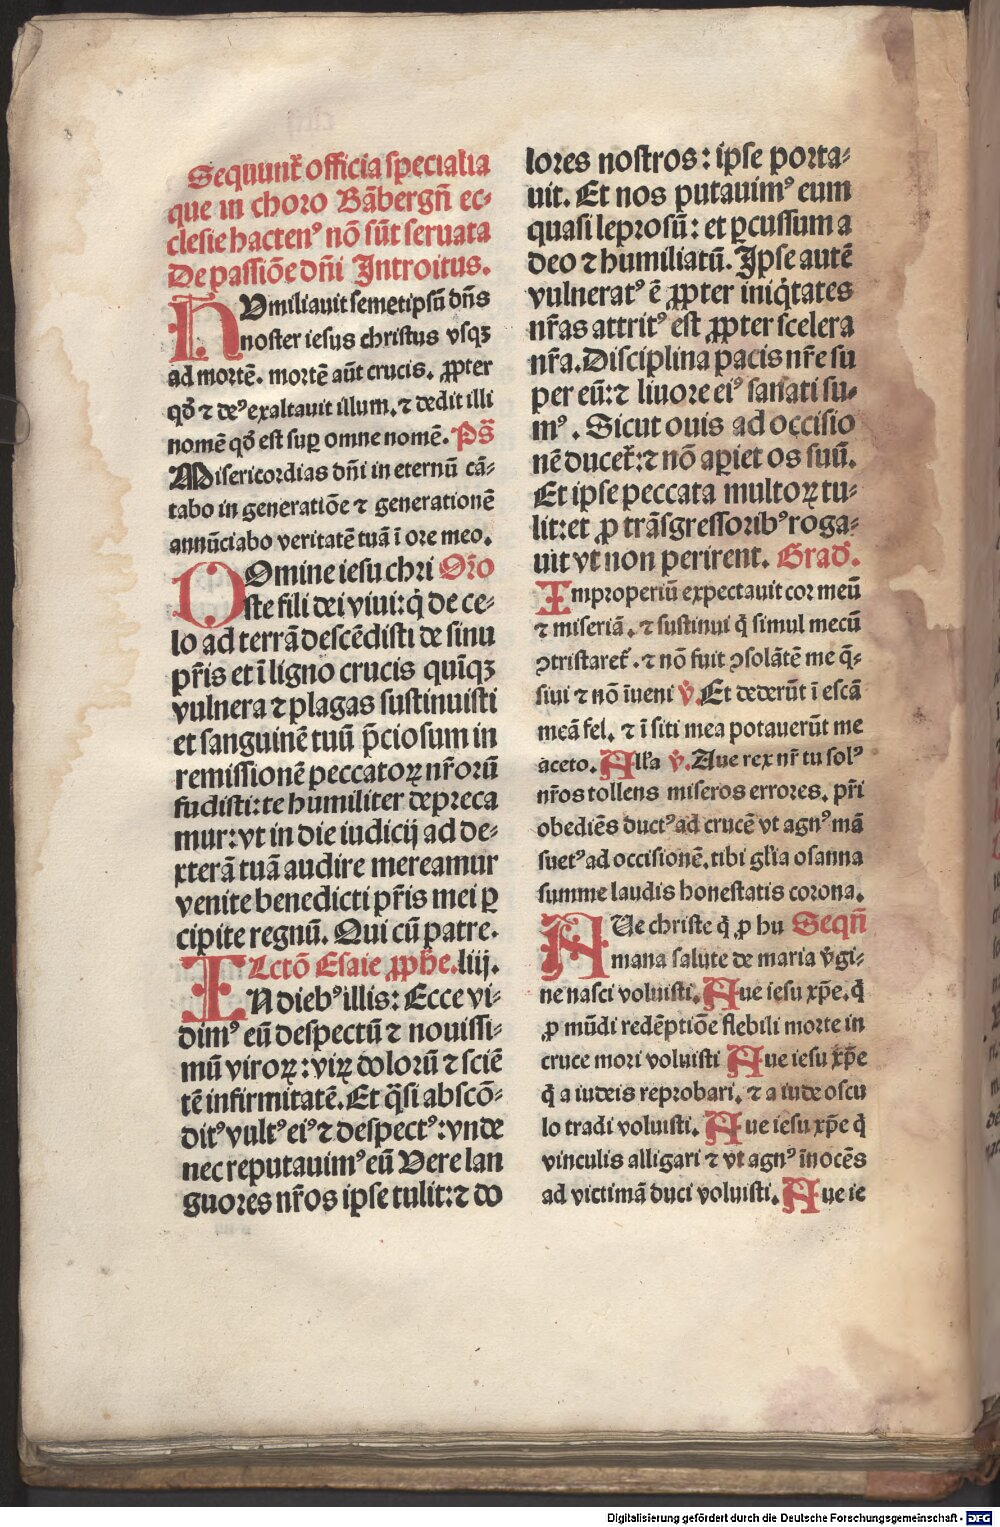 Sequunt᷑ officia specialia
que in choro Bābergn̄ ec⸗
clesie hactenꝰ nō sūt seruata
De passiōe dn̄i Introitus.
HVmiliauit semetipsū dn̄s
noster iesus christus vsqꝫ
ad mortē. mortē aūt crucis. ꝓpter
qd̓ ⁊ deꝰ exaltauit illum. ⁊ dedit illi
nomē qd̓ est suꝑ omne nomē. Ps̄
Misericordias dn̄i in eternū cā⸗
tabo in generatiōe ⁊ generationē
annūciabo veritatē tuā ī ore meo.
DOmine iesu chri Oro̅
ste fili dei viui: q̇ de ce⸗
lo ad terrā descēdisti de sinu
pr̄is et ī ligno crucis quīqꝫ
vulnera ⁊ plagas sustinuisti
et sanguinē tuū p̄ciosum in
remissionē peccatoꝝ nr̄orū
fudisti: te humiliter depreca
mur: vt in die iudicij ad de⸗
xterā tuā audire mereamur
venite benedicti pr̄is mei ꝑ
cipite regnū. Qui cū patre.
Lctō Esaie ꝓph̄e. liij.
IN diebꝰ illis: Ecce vi⸗
dimꝰ eū despectū ⁊ nouissi⸗
mū viroꝝ: viꝝ doloꝛū ⁊ sciē
tē infirmitatē. Et q̄si abscō⸗
ditꝰ vultꝰ eiꝰ ⁊ despectꝰ: vnde
nec reputauimꝰ eū Vere lan
guores nr̄os ipse tulit: ⁊ do
lores nostros: ipse porta⸗
uit. Et nos putauimꝰ eum
quasi leprosū: et ꝑcussum a
deo ⁊ humiliatū. Ipse autē
vulneratꝰ ē ꝓpter iniq̇tates
nr̄as attritꝰ est ꝓpter scelera
nr̄a. Disciplina pacis nr̄e su
per eū: ⁊ liuore eiꝰ sanati su⸗
mꝰ. Sicut ouis ad occisio
nē ducet᷑: ⁊ nō aꝑiet os suū.
Et ipse peccata multoꝝ tu⸗
lit: et ꝓ trāsgressoribꝰ roga⸗
uit vt non perirent. Grad̓.
Improperiū expectauit cor meū
⁊ miseriā. ⁊ sustinui q̇ simul mecū
ꝯtristaret᷑. ⁊ nō fuit ꝯsolātē me q̄⸗
siui ⁊ nō īueni v̓. Et dederūt ī escā
meā fel. ⁊ ī siti mea potauerūt me
aceto. Allʼa v̓. Aue rex nr̄ tu solꝰ
nr̄os tollens miseros errores. pr̄i
obediēs ductꝰ ad crucē vt agnꝰ mā
suetꝰ ad occisionē. tibi glʼia osanna
summe laudis honestatis corona.
AUe christe q̇ ꝓ hu Seqn̄
mana salute de maria v̓gi⸗
ne nasci voluisti. Aue iesu xp̄e. q̇
ꝓ mūdi redēptiōe flebili morte in
cruce mori voluisti Aue iesu xp̄e
q̇ a iudeis reprobari. ⁊ a iude oscu
lo tradi voluisti. Aue iesu xp̄e q̇
vinculis alligari ⁊ vt agnꝰ īnocēs
ad victimā duci voluisti. Aue ie
Digitalisierung gefördert durch die Deutsche Forschungsgemeinschaft - DFG